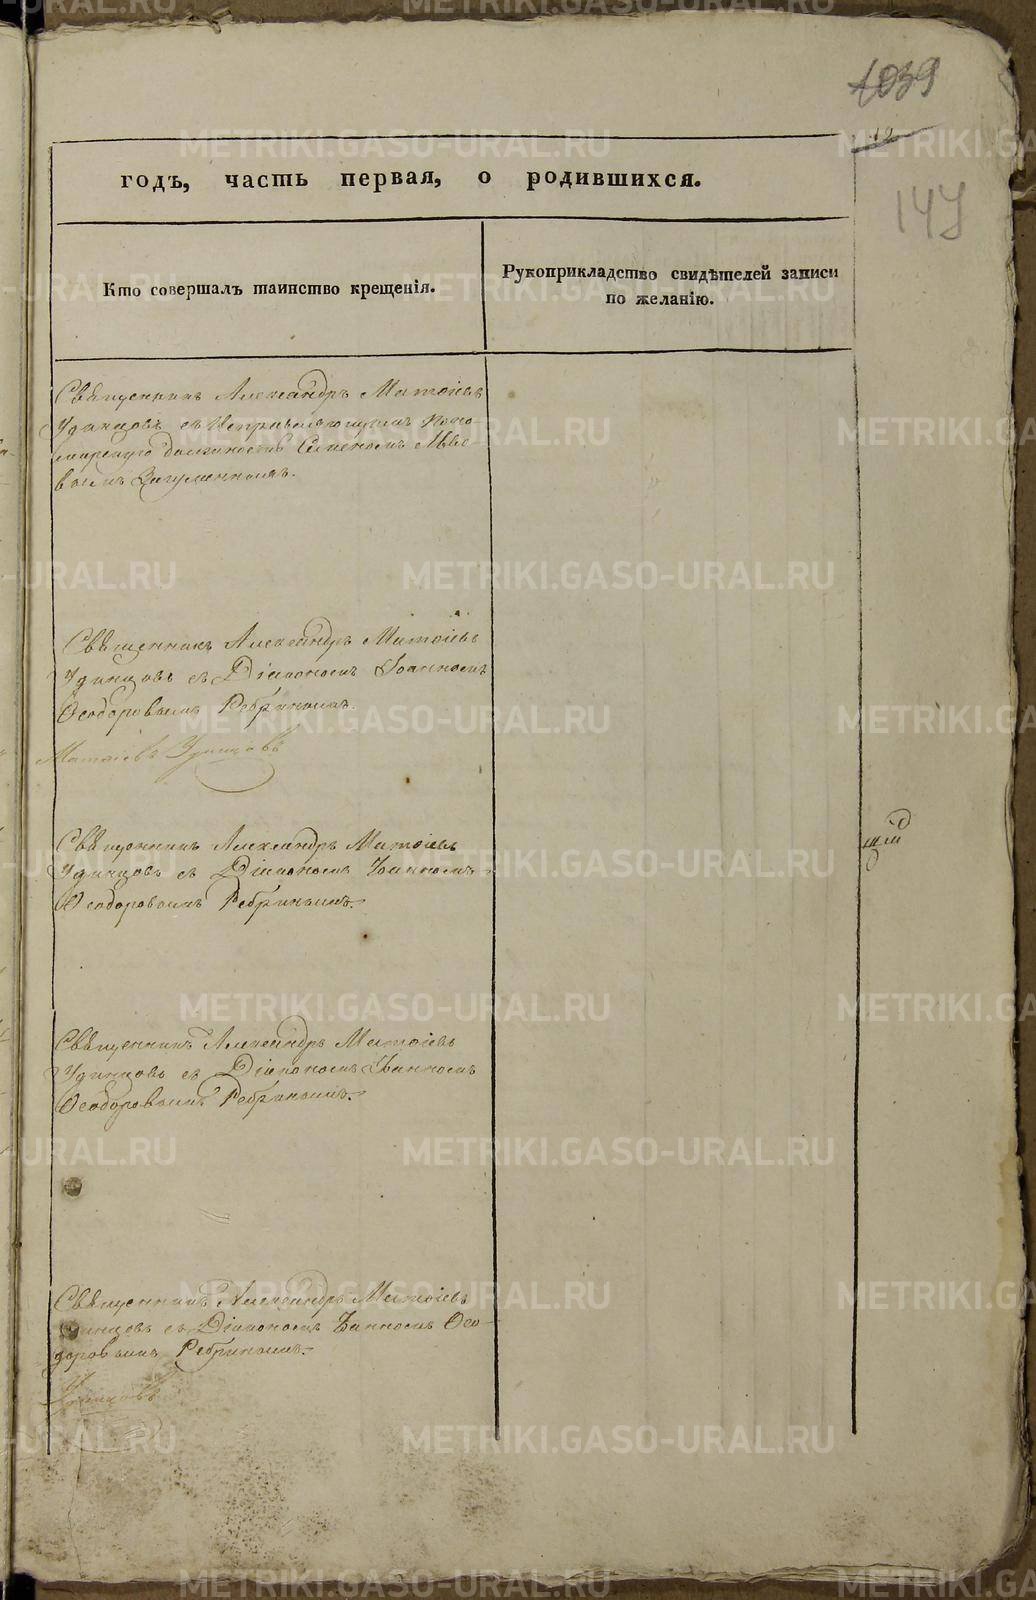 1039
12
147
годъ, часть первая, о родившихся.
Кто совершалъ таинство крещенія.
Рукоприкладство свидѣтелей записи
по желанію.
Священникъ Александръ Матѳіевъ
Удинцовъ съ Исправляющимъ Поно-
марскую должность Симеономъ Льво-
вымъ Загуменнымъ.
Священникъ Александръ Матѳіевъ
Удинцовъ съ Діакономъ Іоанномъ
Ѳеодоровымъ Ребринымъ.
Матѳіевъ Удинцовъ
Священникъ Александръ Матѳіевъ
Удинцовъ съ Діакономъ Іоанномъ
Ѳеодоровымъ Ребринымъ.
Священникъ Александръ Матѳіевъ
Удинцовъ съ Діакономъ Іоанномъ
Ѳеодоровымъ Ребринымъ.
Священникъ Александръ Матѳіевъ
Удинцовъ съ Діакономъ Іоанномъ Ѳео-
доровымъ Ребринымъ.
Удинцовъ
METRIKI.GASO-URAL.RU